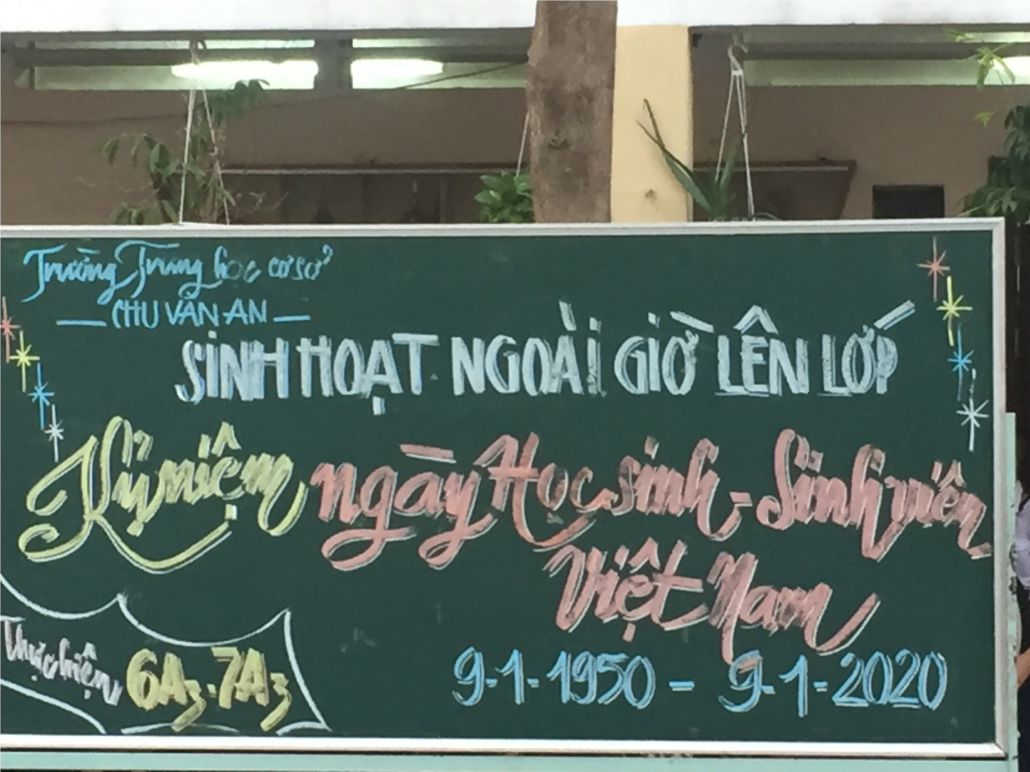 Trường Trung học cơ sở
CHU VĂN AN
SINH HOẠT NGOÀI GIỜ LÊN LỚP
Kỷ niệm ngày Học sinh - Sinh viên
Việt Nam
9-1-1950 - 9-1-2020
Thực hiện 6A3.7A3